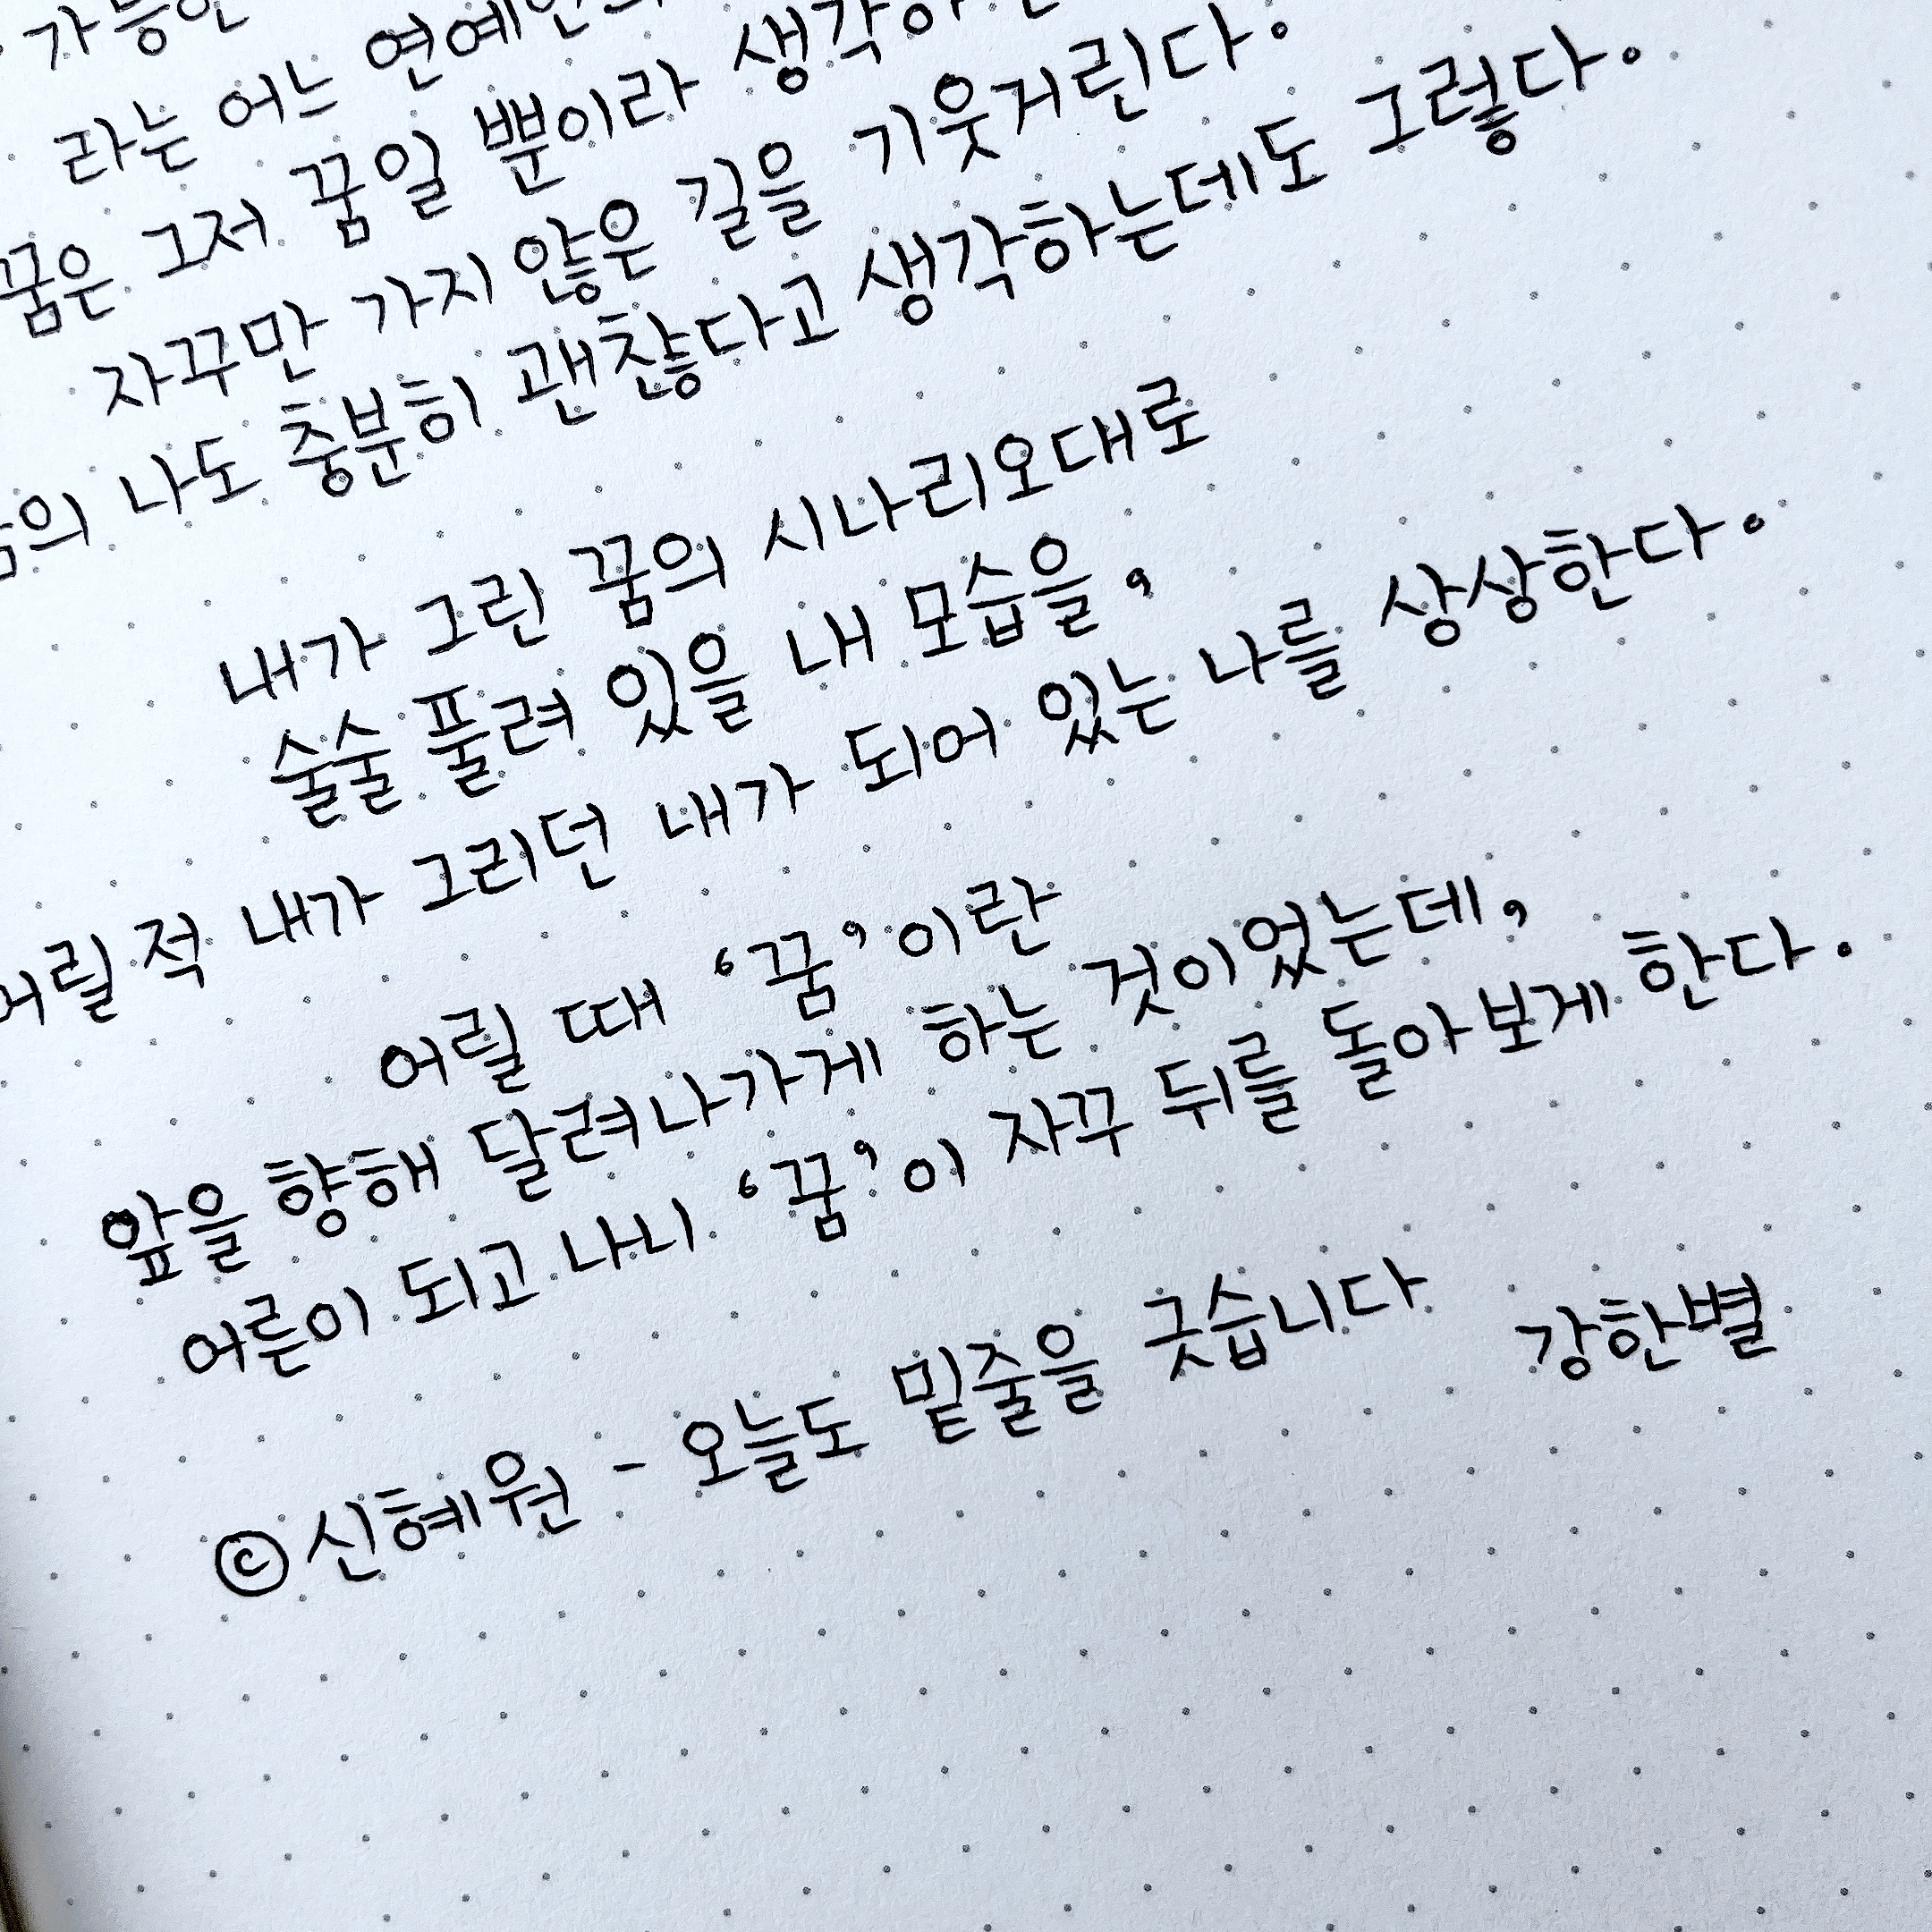 가능한
라는 어느 연예인의
꿈은 그저 꿈일 뿐이라 생각하
자꾸만 가지 않은 길을 기웃거린다.
의 나도 충분히 괜찮다고 생각하는데도 그렇다.
내가 그린 꿈의 시나리오대로
술술 풀려 있을 내 모습을,
어릴 적 내가 그리던 내가 되어 있는 나를 상상한다.
어릴 때 ‘꿈’이란
앞을 향해 달려나가게 하는 것이었는데,
어른이 되고 나니 ‘꿈’이 자꾸 뒤를 돌아보게 한다.
© 신혜원 - 오늘도 밑줄을 긋습니다 강한별